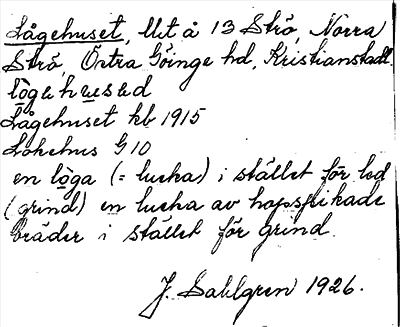 Lågehuset, llet å 13 Strö, Norra
Strö, Östra Göinge hd, Kristianstadl.
lögehuesed
Lågehuset kb 1915
Lohehus G 10
en löga (= lucka) i stället för led
(grind) en lucka av hopspikade
bräder i stället för grind.
J. Sahlgren 1926.